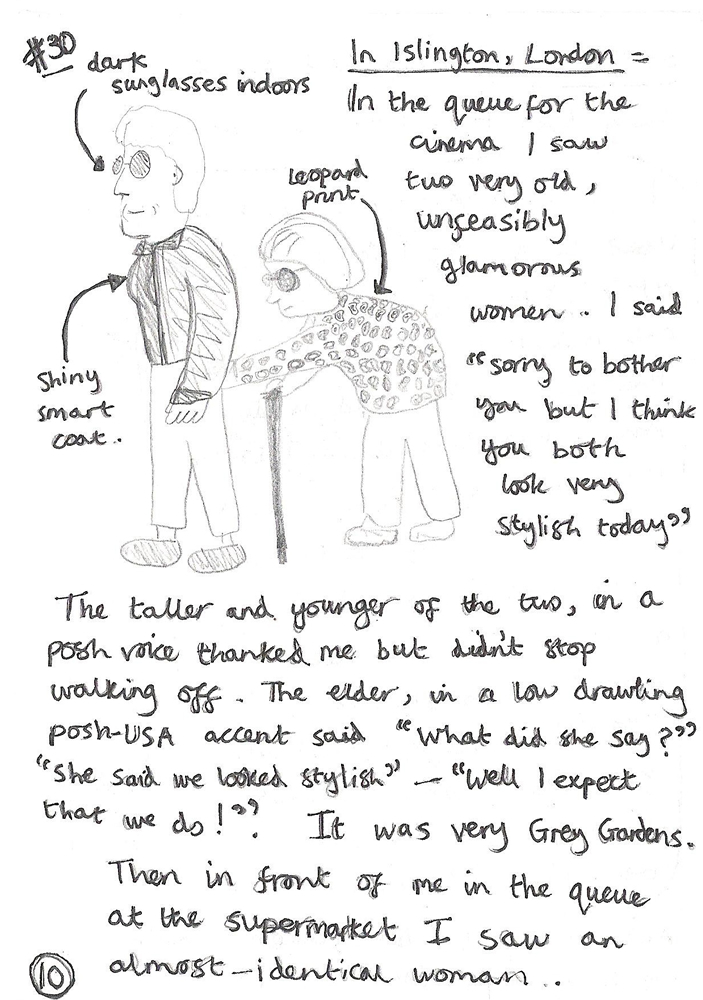 #30
dark
sunglasses indoors
Leopard
print
Shiny
smart
coat.
In Islington, London =
In the queue for the
cinema I saw
two very old,
unfeasibly
glamorous
women .. I said
"sorry to bother
you but I think
you both
look very
stylish today"
The taller and younger of the two, in a
posh voice thanked me but didn't stop
walking off. The elder, in a low drawling
posh-USA accent said "What did she say?"
"She said we looked stylish" – "Well I expect
that we do!". It was very Grey Gardens.
Then in front of me in the queue
at the supermarket I saw an
almost-identical woman ..
10